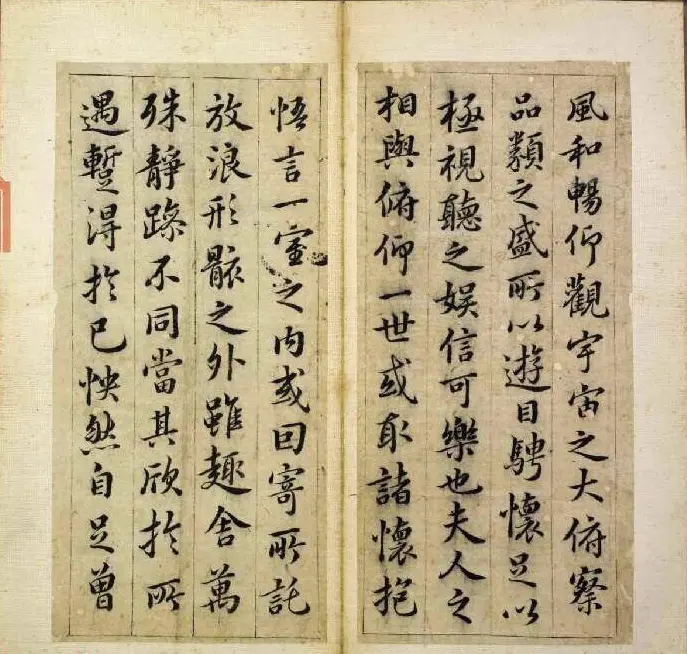 風和暢仰觀宇宙之大俯察
品類之盛所以遊目騁懷足以
極視聽之娱信可樂也夫人之
相與俯仰一世或取諸懷抱
悟言一室之内或因寄所託
放浪形骸之外雖趣舍萬
殊靜躁不同當其欣扵所
遇蹔得扵己怏然自足曾